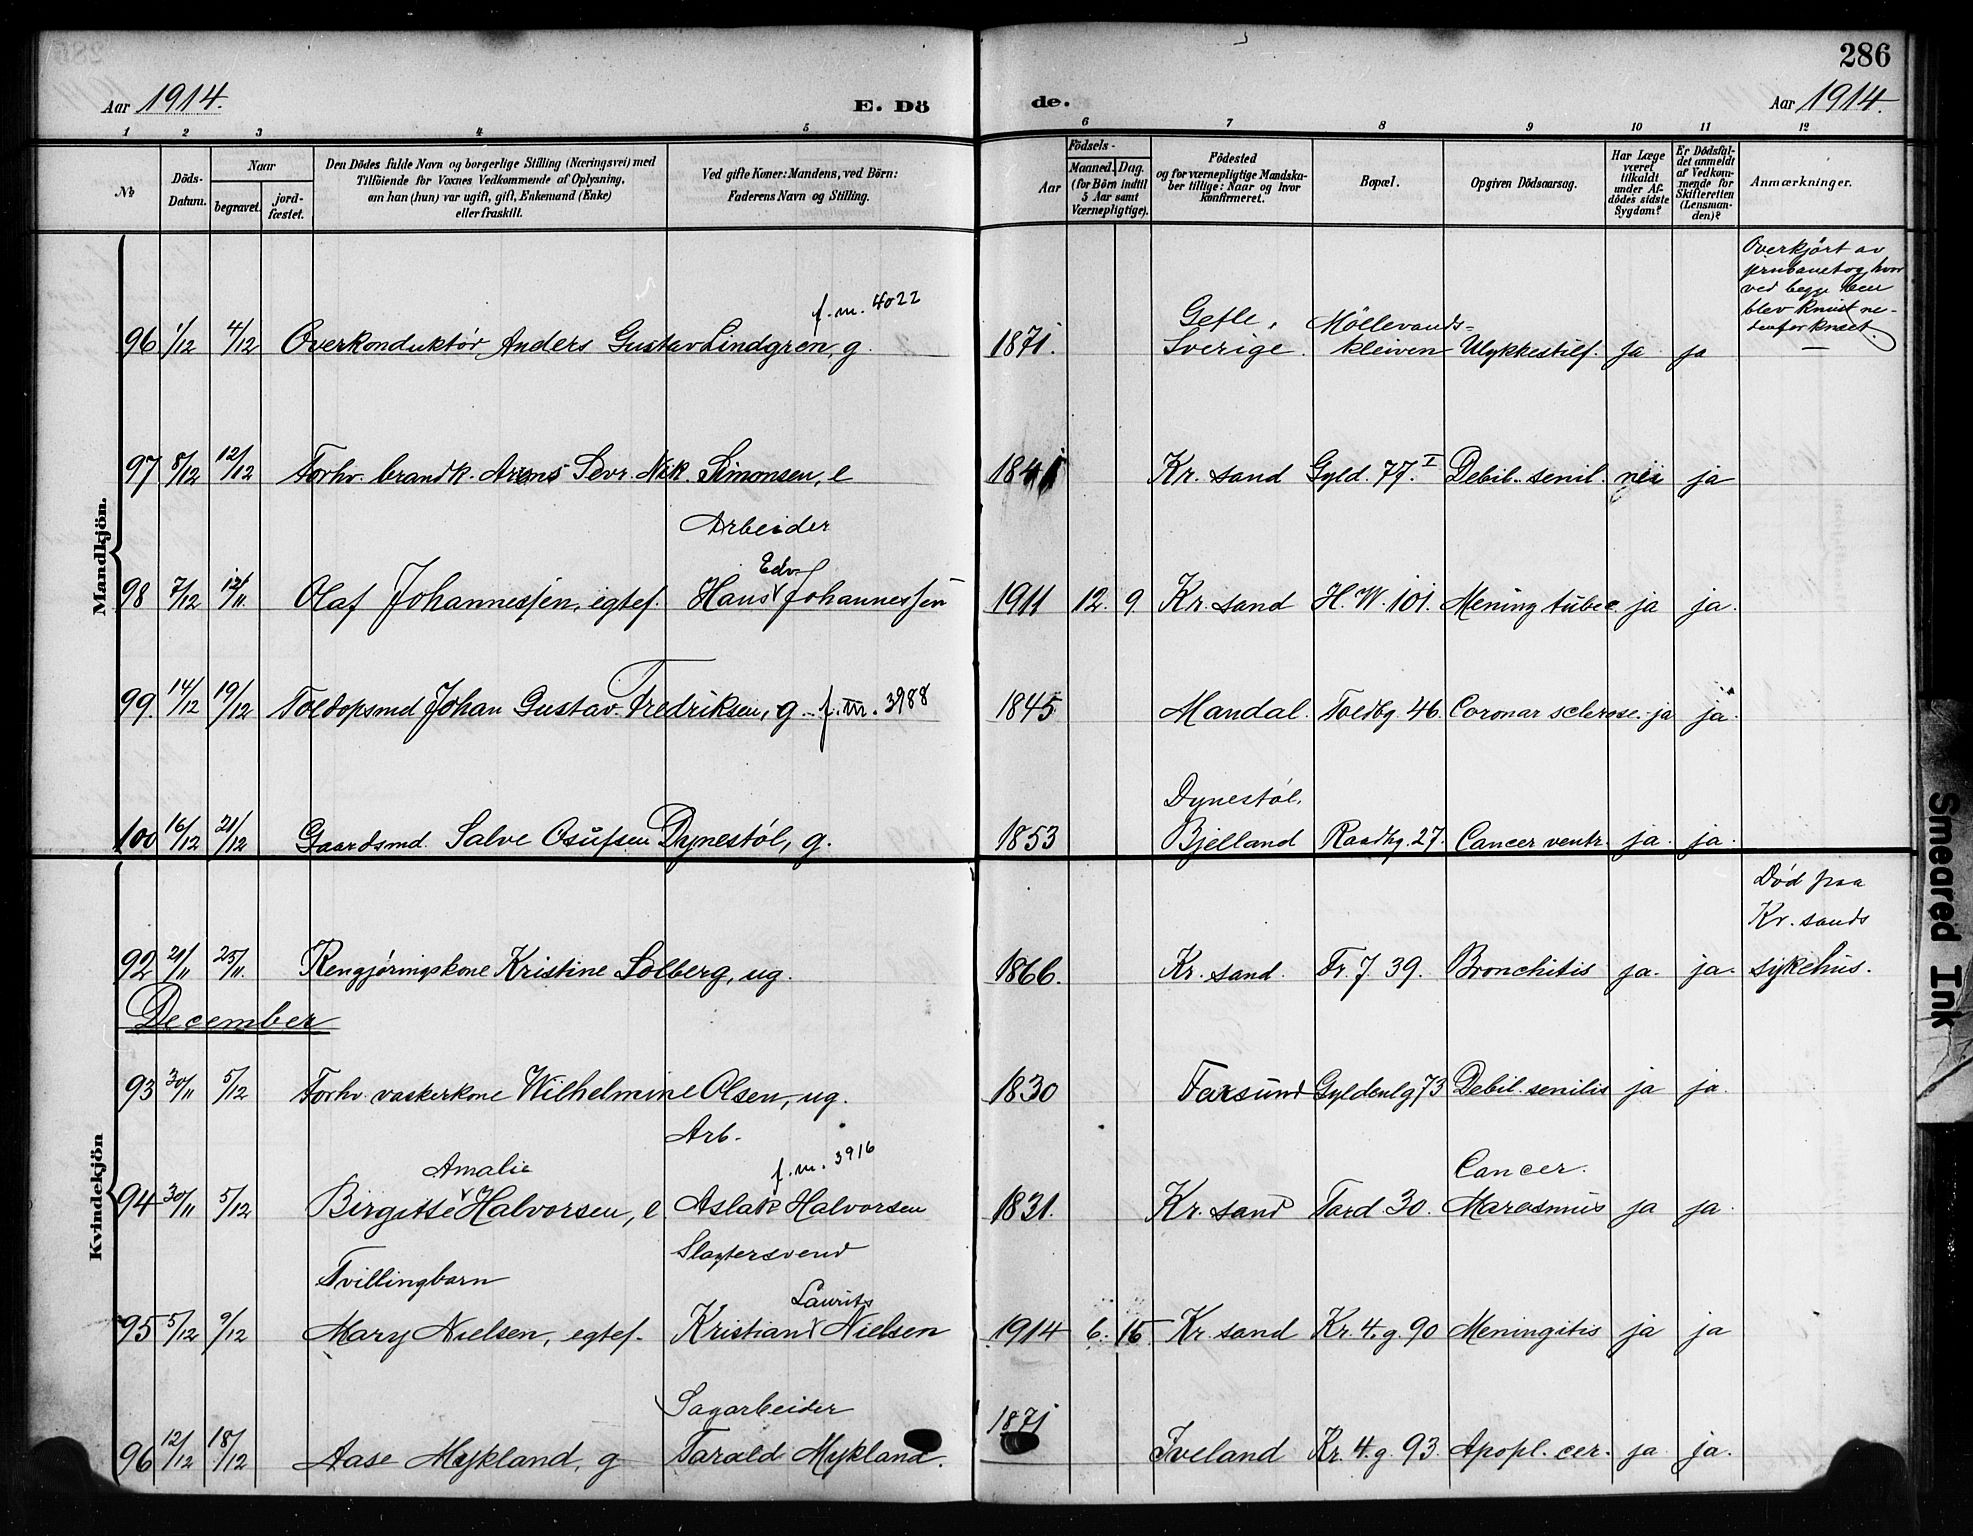 286
Aar 1914. E. Dö de. Aar 1914.
1 2 3 4 5 6 7 8 9 10 11 12
No
Döds-Datum.
Naar
begravet.
jord-fæstet.
Den Dödes fulde Navn og borgerlige Stilling (Næringsvei) med
Tilföiende for Voxnes Vedkommende af Oplysning,
om han (hun) var ugift, gift, Enkemand (Enke)
eller fraskilt.
Ved gifte Koner: Mandens, ved Börn:
Faderens Navn og Stilling.
Födsels-
Aar
Maaned. Dag.
(for Börn indtil
5 Aar samt
Værnepligtige).
Födested
og for værnepligtige Mandska-
ber tillige: Naar og hvor
konfirmeret.
Bopæl.
Opgiven Dödsaarsag.
Har Læge
været
tilkaldt
under Af-
dödes sidste
Sygdom?
Er Dödsfal-
det anmeldt
af Vedkom-
mende for
Skifteretten
(Lensman-
den)?
Anmærkninger.
Mandkjön.
Overkjørt av
jernbanetog, hvor
ved begge ben
blev knust ne-
denfor knæet.
f.m. 4022
Gefle, Möllevands=
96 1/12 4/12 Overkonduktör Anders Gustav Lindgren, g. 1871. Sverige. kleiven Ulykkestilf. ja ja
97 8/12 12/12 Forhv. brandk. Arens Sevr. Nik. Simonsen, e 1841 Kr. sand Gyld. 77.I Debil. senil. nei ja
Arbeider
Edv.
98 7/12 12/11. Olaf Johannessen, egtef. Hans Johannessen 1911 12. 9. Kr. sand H.W. 101. Mening tuberc. ja ja.
99. 14/12 19/12 Toldopsmd Johan Gustav Fredriksen, g. f.m. 3988 1845 Mandal. Toldbg. 46. Coronar sclerose. ja ja.
Dynestöl,
100 16/12 21/12 Gaardsmd. Salve Osufsen Dynestöl, g. 1853 Bjelland Raadhg. 27. Cancer ventr. ja. ja.
Kvindekjön
Död paa
Kr. sands
92 21/11 25/11. Rengjøringskone Kristine Solberg, ug. 1866. Kr. sand. Fr. 7 39. Bronchitis ja. ja. sykehus.
December
93 30/11 5/12 Forhv. vaskerkone Wilhelmine Olsen, ug. 1830 Farsund Gyldenlg 73 Debil. senilis ja ja.
Arb.
f.m. 3916
Amalie Cancer.
94 30/11 5/12 Birgitte Halvorsen, e. Aslak Halvorsen 1831. Kr. sand Tord. 30. Marasmus ja ja.
Slagtersvend
Tvillingbarn
Laurits
95 5/12 9/12 Mary Nielsen, egtef. Kristian Nielsen 1914 6. 15 Kr. sand Kr. 4. g. 90 Meningitis ja ja
Sagarbeider
1871
96 12/12 18/12 Aase Mykland, g Tarald Mykland. Iveland Kr. 4. g. 93. Apopl. cer. ja ja.
Smeared Ink